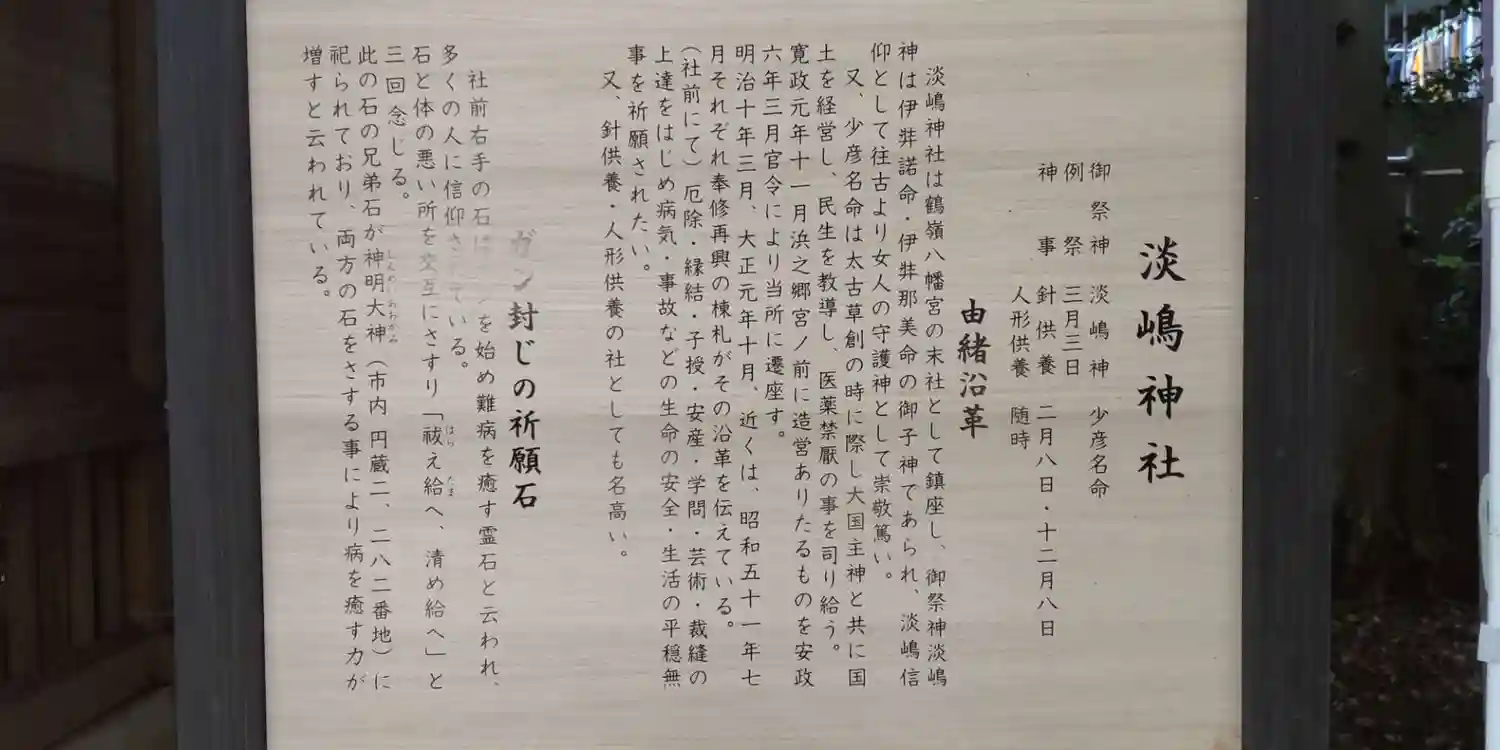 淡嶋神社
御祭神 淡嶋神 少彦名命
例祭 三月三日
神事 針供養 二月八日・十二月八日
人形供養 随時
由緒沿革
淡嶋神社は鶴嶺八幡宮の末社として鎮座し、御祭神淡嶋
神は伊弉諾命・伊弉那美命の御子神であられ、淡嶋信
仰として往古より女人の守護神として崇敬篤い。
又、少彦名命は太古草創の時に際し大国主神と共に国
土を経営し、民生を教導し、医薬禁厭の事を司り給う。
寛政元年十一月浜之郷宮ノ前に造営ありたるものを安政
六年三月官令により当所に遷座す。
明治十年三月、大正元年十月、近くは、昭和五十一年七
月それぞれ奉修再興の棟札がその沿革を伝えている。
(社前にて)厄除・縁結・子授・安産・学問・芸術・裁縫の
上達をはじめ病気・事故などの生命の安全・生活の平穏無
事を祈願されたい。
又、針供養・人形供養の社としても名高い。
ガン封じの祈願石
社前右手の石は ンを始め難病を癒す霊石と云われ、
多くの人に信仰されている。
石と体の悪い所を交互にさすり「祓え給へ、清め給へ」と
三回念じる。
此の石の兄弟石が神明大神(市内円蔵二、二八二番地)に
祀られており、両方の石をさする事により病を癒す力が
増すと云われている。